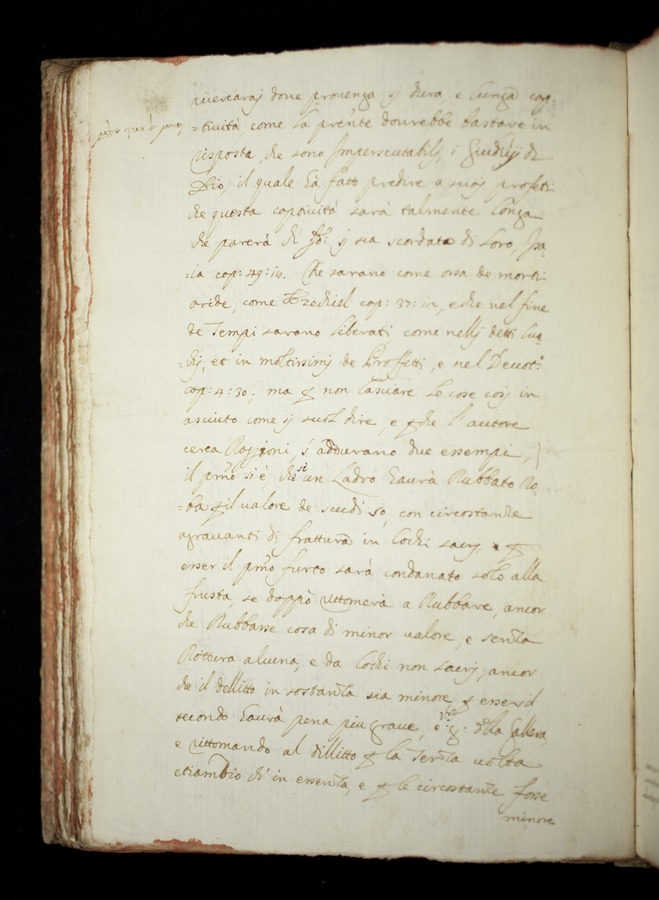 ricercarsj done provenga sj dura e lunga cap:
=tiuità come la pre'nte dourebbe bastare in
risposta, che sono Imperscrutabilj i Giuditij di
Dio, il quale hà fatto predire a suoj profeti
che questa captiuità sarà talmente longa
che parerà ch' sj sia scordato di loro, Isa
=ia cap: 49: 14. Che sarano come ossa de morti
aride, come Ezechiel cap: 37: in, e che nel fine
de Tempi sarano liberati come nellj detti luo
=chj, et in moltissimj de Proffetti, e nel Deuot:
cap: 4: 30; ma p non lasciare le cose cosj in
asciuto come sj suol dire, e p che l'autore
cerca Raggioni, s'addurano due essempi,
il pmo si è che si un Ladro haurà Rubbato Ro=
=ba p il valore de scudi 50, con circostanze
agrauanti di frattura in lochi sacrj p
esser il pmo furto sarà condanato solo alla
frusta, se doppò rittornerà a Rubbare, ancor
che Rubbasse cosa di minor valore, e senza
Rottura alcuna, e da lochi non sacrj, ancor
che il dellitto in sostanza sia minore p esser il
secondo haurà pena piu graue, v:g: della Gallera,
e rittornando al dillitto p la terza uolta
etiamdio ch' in essenza, e p le circostanze fosse
minore